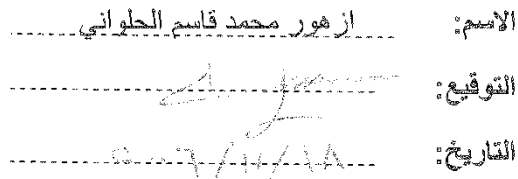 الاسم: ازهور محمد قاسم الحلواني
التوقيع:
التاريخ: